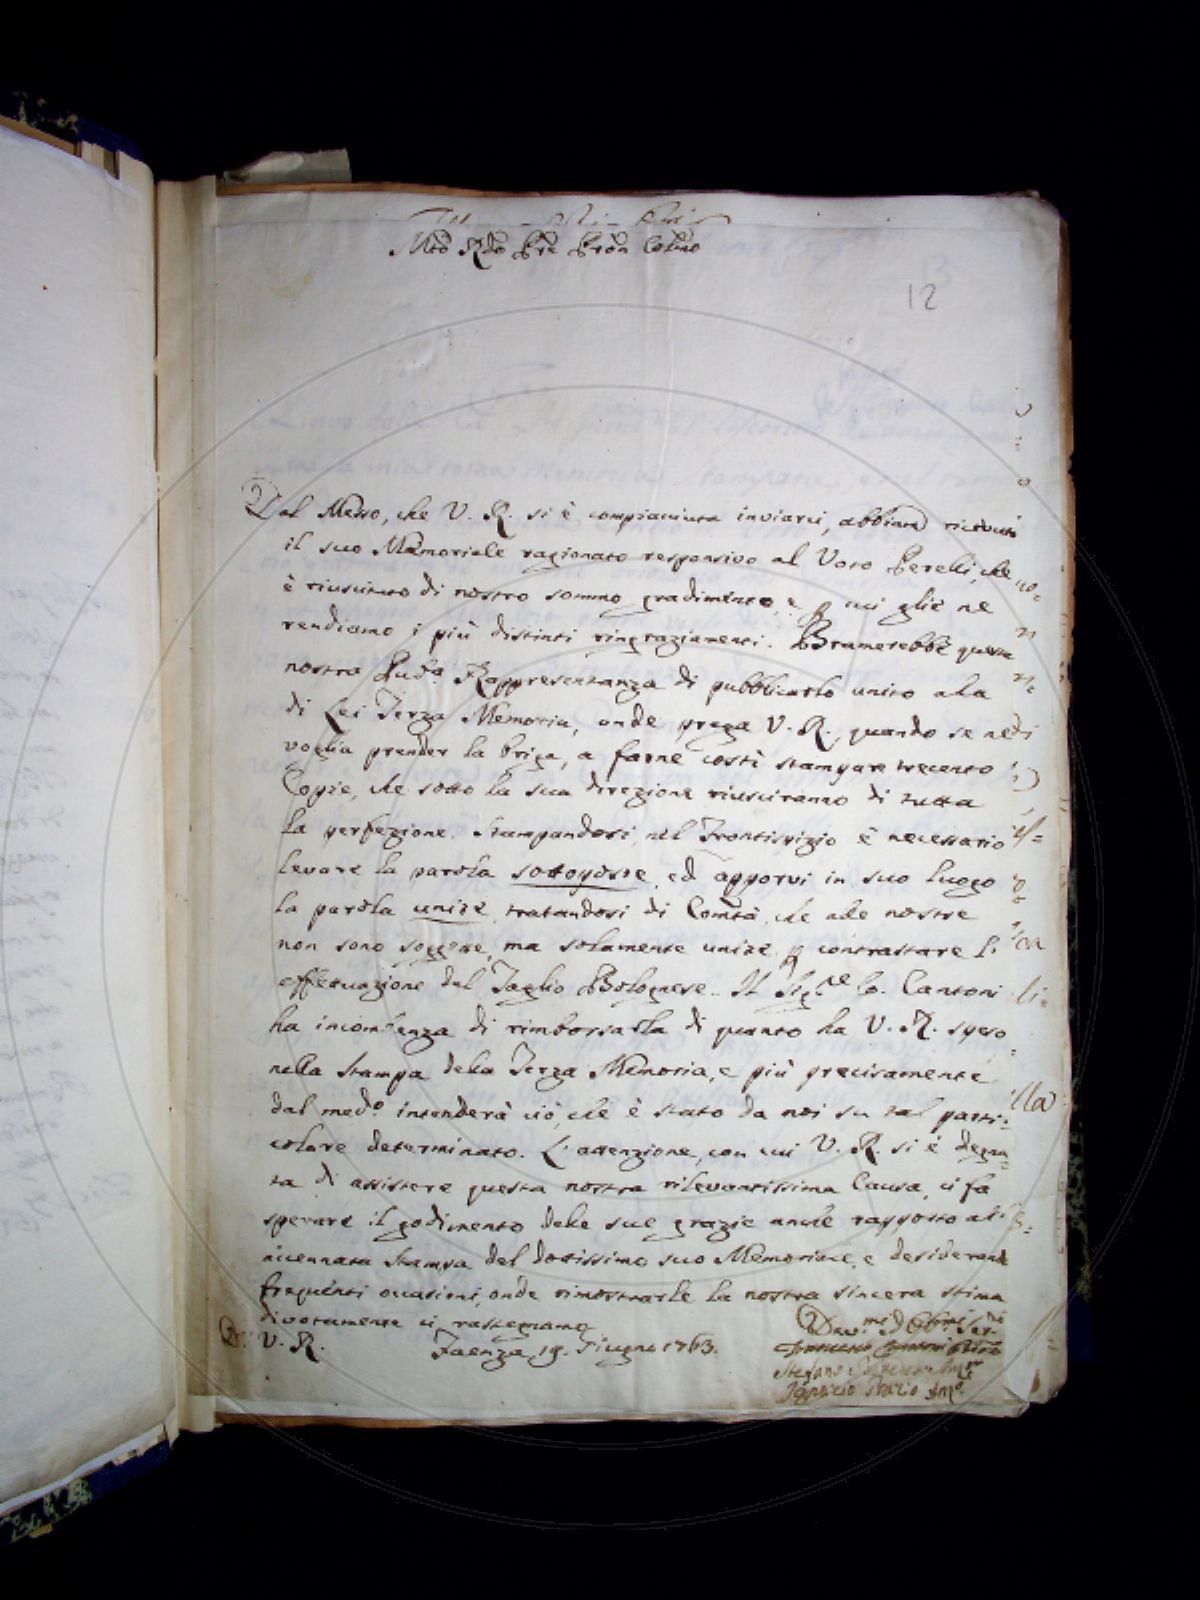 Mto Rdo Pre Pron Colmo
12
Dal Messo, che V. R. si è compiaciuta inviarci, abbiamo ricevuto
il suo Memoriale ragionato responsivo al Voto Perelli, che
è riuscito di nostro sommo gradimento, e p cui gliè ne
rendiamo i più distinti ringraziamenti. Bramerebbe questa
nostra Pubca Rappresentanza di pubblicarlo unito alla
di Lei Terza Memoria, onde prega V. R., quando se ne
voglia prender la briga, a farne costì stampare trecento
Copie, che sotto la sua direzione riusciranno di tutta
la perfezione. Stampandosi, nel Frontispizio è necessario
levare la parola sottoposte, ed apporvi in suo luogo
la parola unite, trattandosi di Comtà, che alle nostre
non sono soggette, ma solamente unite p contrastare l'
effettuazione del Taglio Bolognese. Il Sigre C. Cantoni
ha incombenza di rimborsarla di quanto ha V. R. speso
nella Stampa della Terza Memoria, e più precisamente
dal medo intenderà ciò, che è stato da noi su tal parti:
colare determinato. L'attenzione, con cui V. R. si è degna=
ta di assistere questa nostra rilevantissima Causa, ci fa
sperare il godimento delle sue grazie anche rapporto all'
accennata Stampa del dottissimo suo Memoriale, e desiderando
frequenti occasioni, onde dimostrarle la nostra sincera stima
divotamente ci rassegnamo
Di V. R. Faenza 19. Giugno 1763.
Devmi Obbmi Serri
Stefano
Ignazio